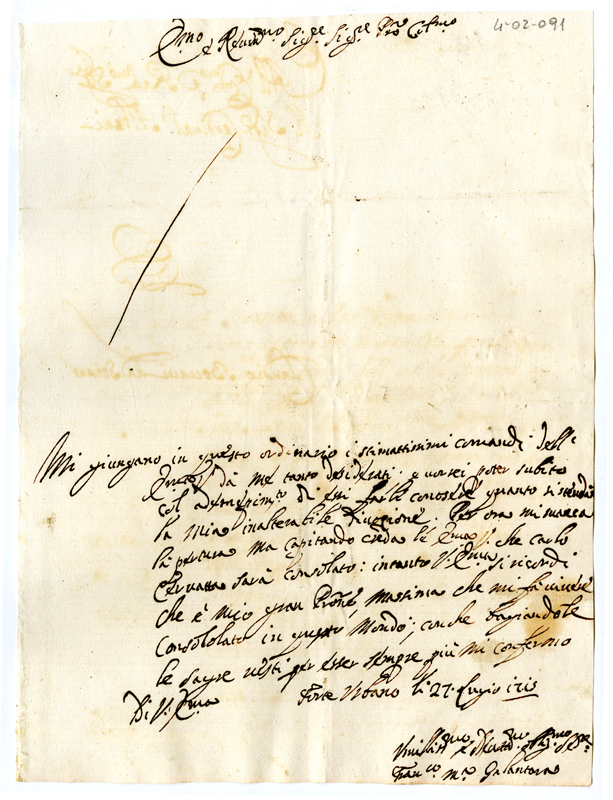 4-02-091
Emo e Revmo Sigre Sigre Prõe Colmo
Mi giungano in questo ordinario i stimatissimi comandi dell'
Emza Vª da me tanto desiderati: e vorrei poter subito
col adempimto di essi farle conoscere quanto si stenda
la mia inalterabile divozione. Per ora mi manca
la procura ma capitando creda le Emza Vª che Carlo
sarà consolato: intanto V. Emza si ricordi
che è mio gran Prõne, massima che mi fa vivere
consolato in questo Mondo; con che bagiandole
le sagre vesti per esser sempre più mi confermo
Di V. Emza Forte Urbano li 27 Luglio 1713
Umilissmo e Devotmo
Franco Ma Galantara